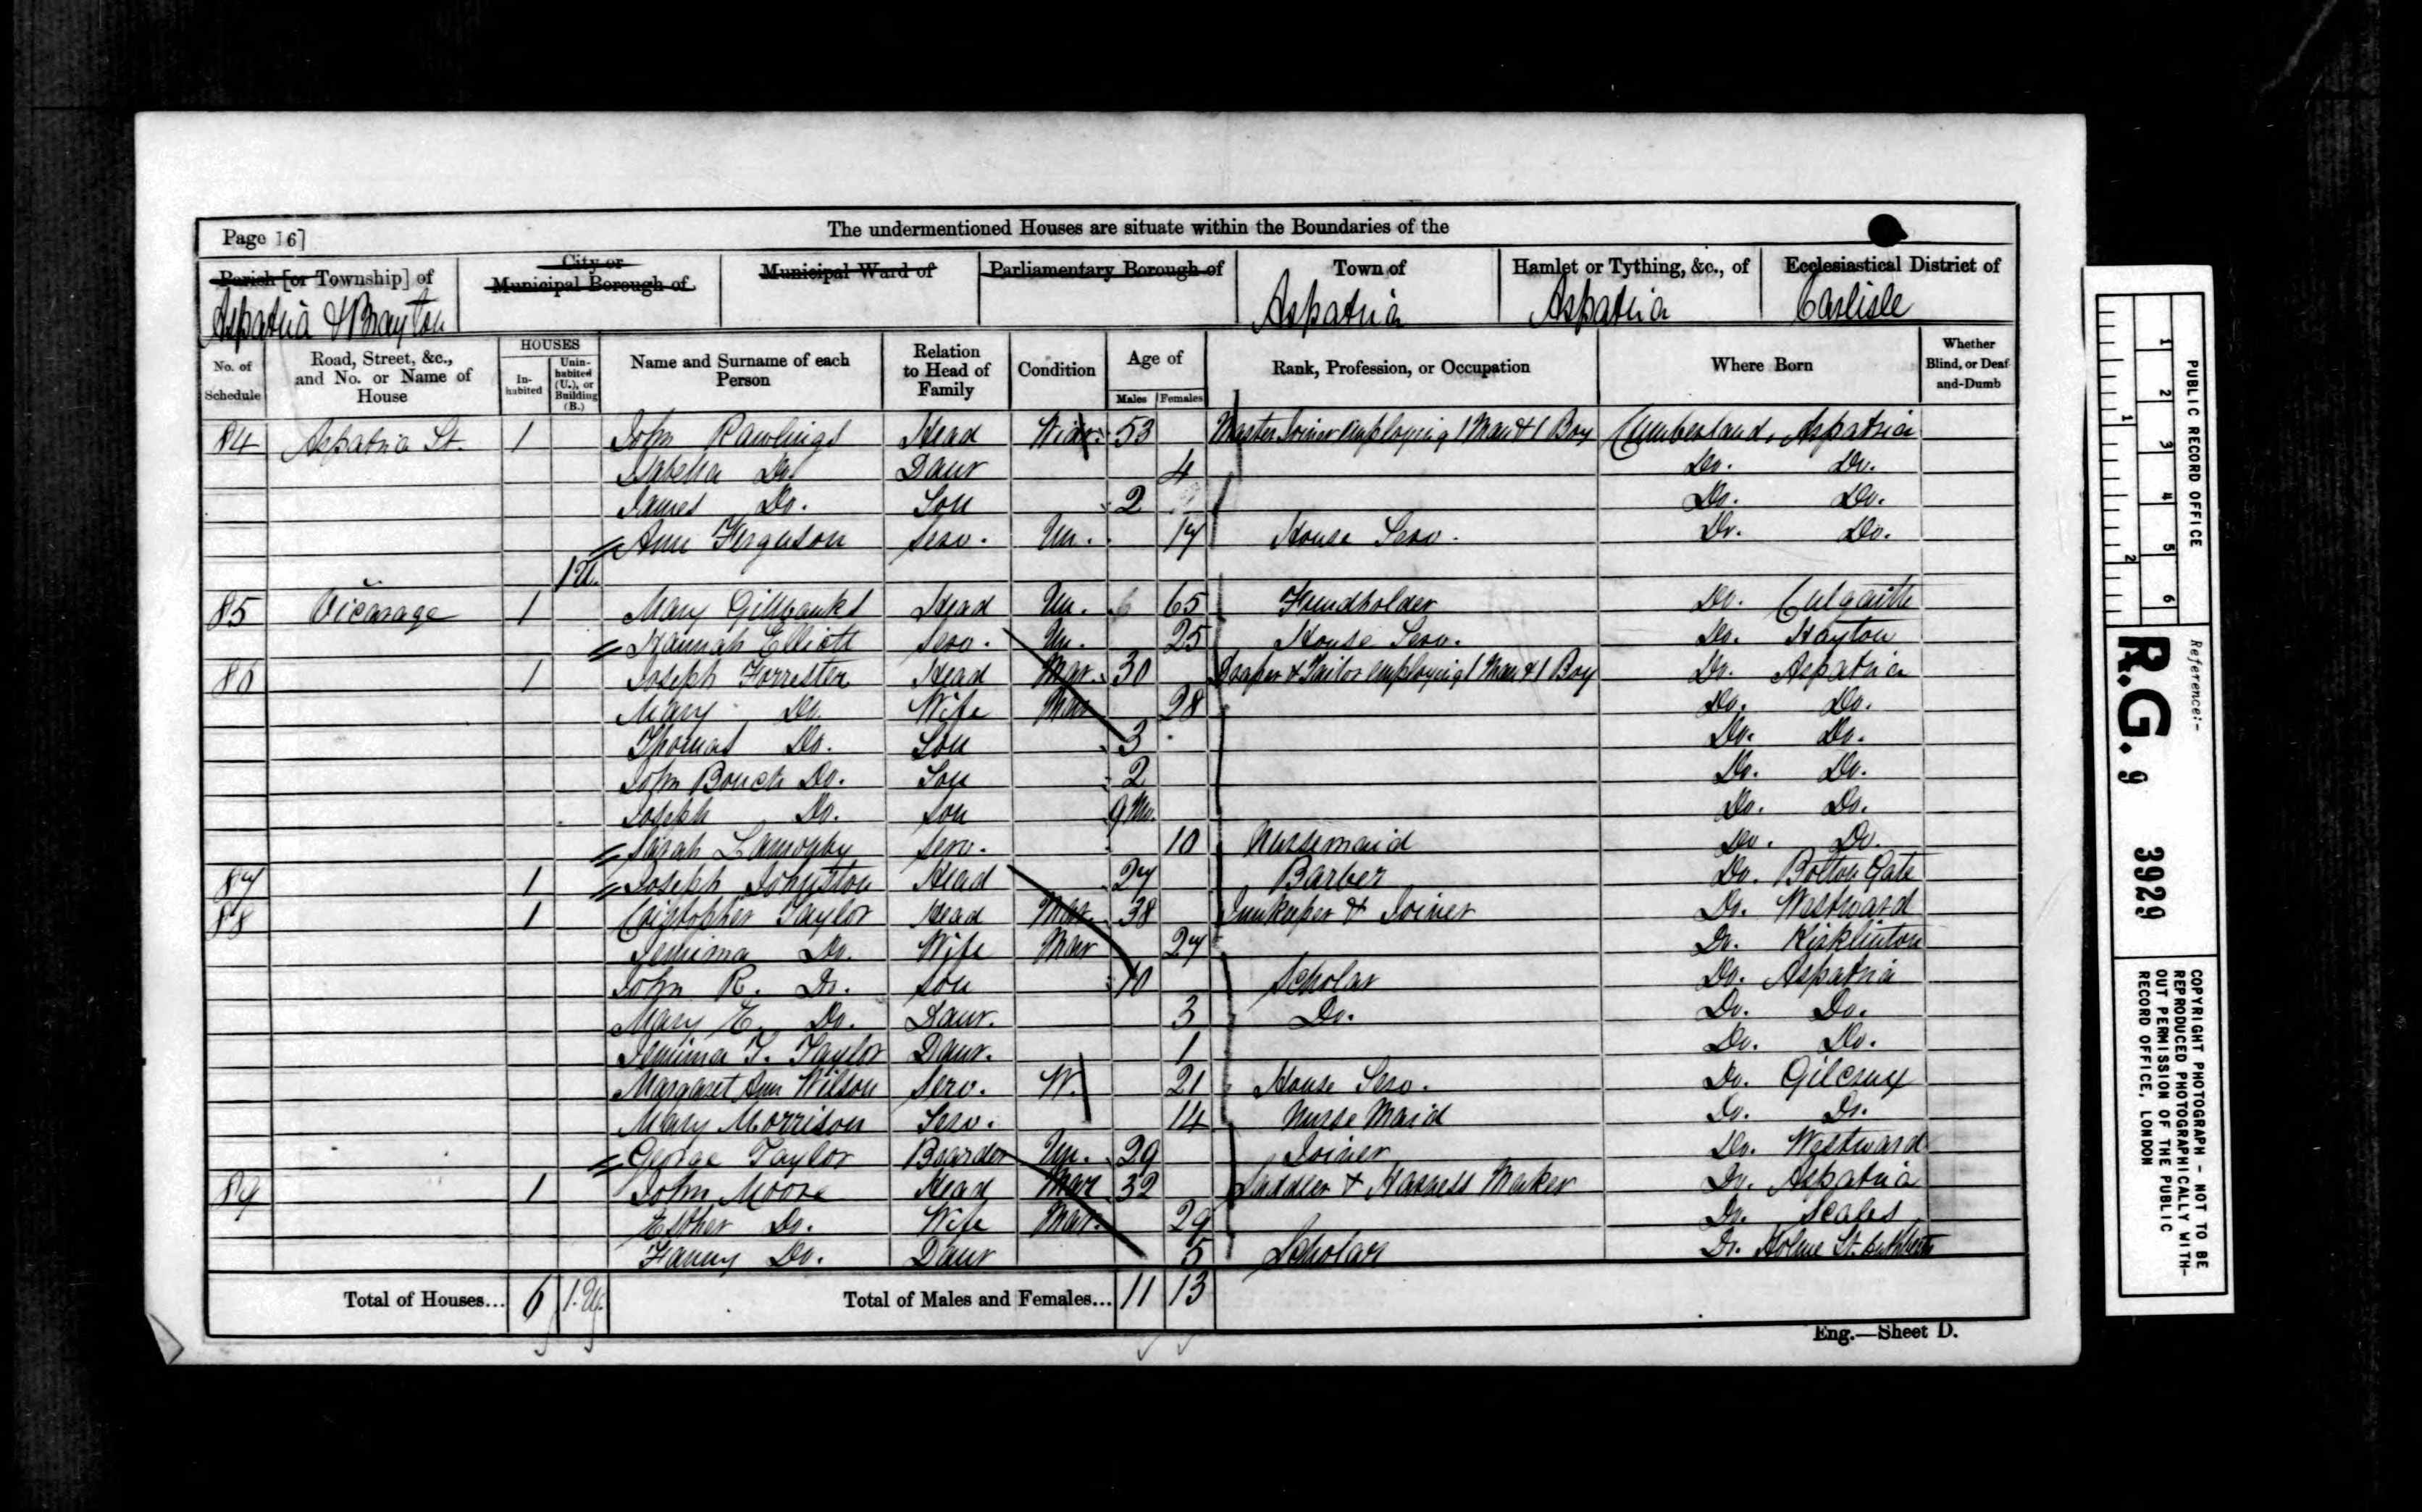 Page 16]
The undermentioned Houses are situate within the Boundaries of the
Parish [or Township] of
City or Municipal Borough of
Municipal Ward of
Parliamentary Borough of
Town of
Hamlet or Tything, &c., of
Ecclesiastical District of
Aspatria & Brayton
Aspatria
Aspatria
Carlisle
No. of Schedule
Road, Street, &c., and No. or Name of House
HOUSES
In-habited
Unin-habited (U.), or Building (B.)
Name and Surname of each Person
Relation to Head of Family
Condition
Age of
Males
Females
Rank, Profession, or Occupation
Where Born
Whether Blind, or Deaf-and-Dumb
84 Aspatria St. 1 John Rawlings Head Widr. 53 Master Joiner employing 1 Man & 1 Boy Cumberland, Aspatria
Isabella Do. Daur 4 Do. Do.
James Do. Son 2 Do. Do.
Ann Ferguson Serv. Un. 17 House Serv. Do. Do.
1 U.
85 Vicarage 1 Mary Gillbanks Head Un. 65 Fundholder Do. Culgaith
Hannah Elliott Serv. Un. 25 House Serv. Do. Hayton
86 1 Joseph Forrester Head Mar. 30 Draper & Tailor employing 1 Man & 1 Boy Do. Aspatria
Mary Do. Wife Mar 28 Do. Do.
Thomas Do. Son 3 Do. Do.
John Bouch Do. Son 2 Do. Do.
Joseph Do. Son 9 Mo. Do. Do.
Sarah Serv. 10 Nursemaid Do. Do.
87 1 Joseph Johnston Head 27 Barber Do. Bolton Gate
88 1 Christopher Taylor Head Mar. 38 Innkeeper & Joiner Do. Westward
Jemima Do. Wife Mar 27 Do. Kirklinton
John R. Do. Son 10 Scholar Do. Aspatria
Mary E. Do. Daur. 3 Do. Do. Do.
Jemima T. Taylor Daur. 1 Do. Do.
Margaret Ann Wilson Serv. W. 21 House Serv. Do. Gilcrux
Mary Morrison Serv. 14 Nurse Maid Do. Do.
George Taylor Boarder Un. 29 Joiner Do. Westward
89 1 John Moore Head Mar 32 Saddler & Harness Maker Do. Aspatria
Esther Do. Wife Mar. 29 Do. Scales
Fanny Do. Daur 5 Scholar Do. Holme St. Cuthbert
Total of Houses... 6 1.U.
Total of Males and Females... 11 13
Eng.—Sheet D.
1 2 3 4 5 6
1 2
PUBLIC RECORD OFFICE
Reference:-
R.G. 9 3929
COPYRIGHT PHOTOGRAPH - NOT TO BE
REPRODUCED PHOTOGRAPHICALLY WITH-
OUT PERMISSION OF THE PUBLIC
RECORD OFFICE, LONDON